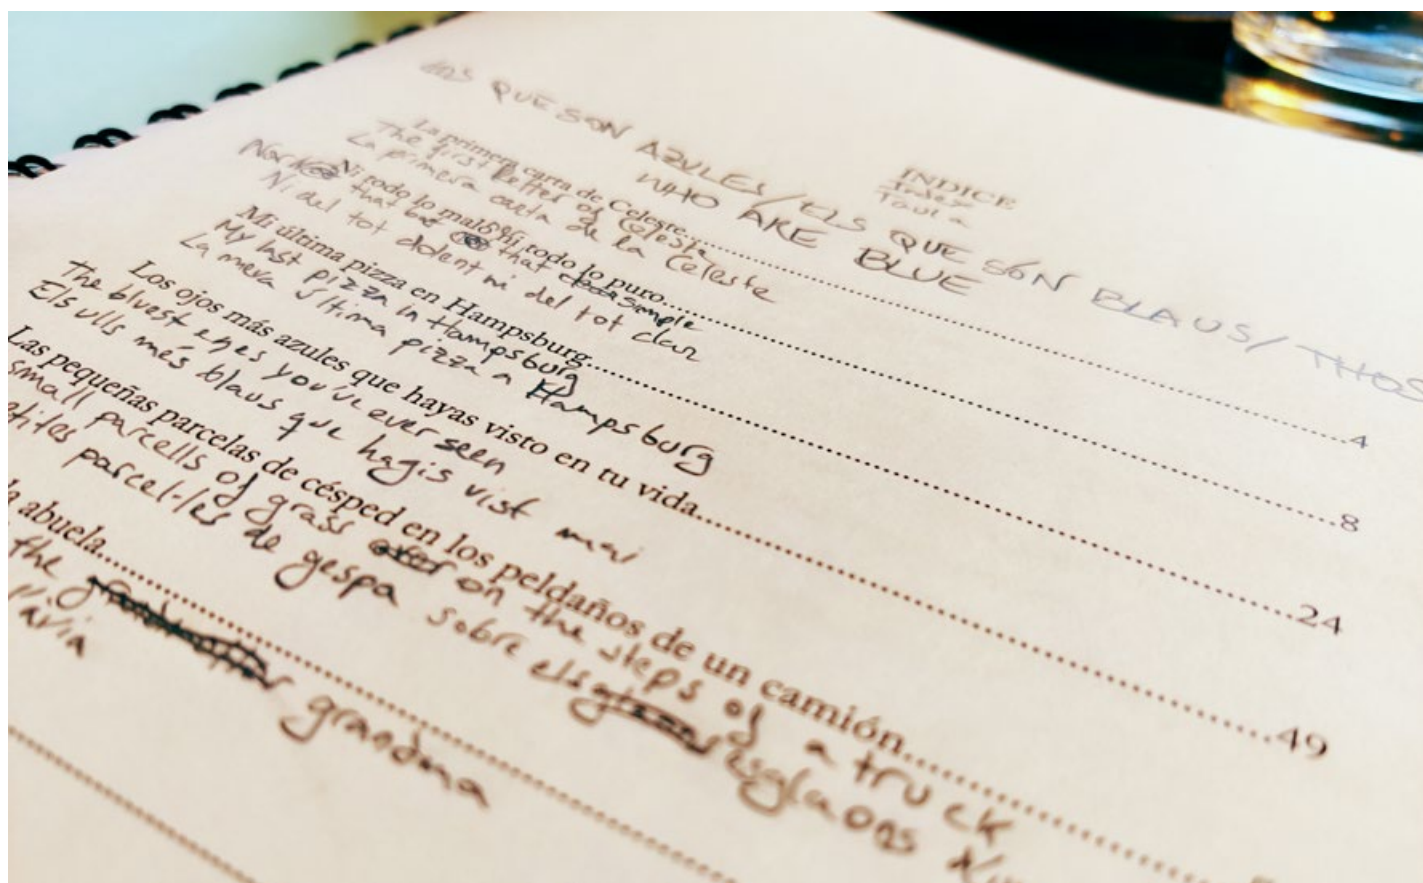 LOS QUE SON AZULES/ELS QUE SÓN BLAUS/THOS
WHO ARE BLUE
ÍNDICE
Index
Taula
La primera carta de Celeste....................4
The first letter of Celeste
La primera carta de la Celeste
Ni todo lo malo Ni todo lo puro....................8
Nor that bad that simple
Ni del tot dolent ni del tot clar
Mi última pizza en Hampsburg....................24
My last pizza in Hampsburg
La meva última pizza a Hampsburg
Los ojos más azules que hayas visto en tu vida....................49
The bluest eyes you've ever seen
Els ulls més blaus que hagis vist mai
Las pequeñas parcelas de césped en los peldaños de un camión....................
small parcells of grass on the steps of a truck
tites parcel·les de gespa sobre els esglaons
abuela....................
the grandma
àvia